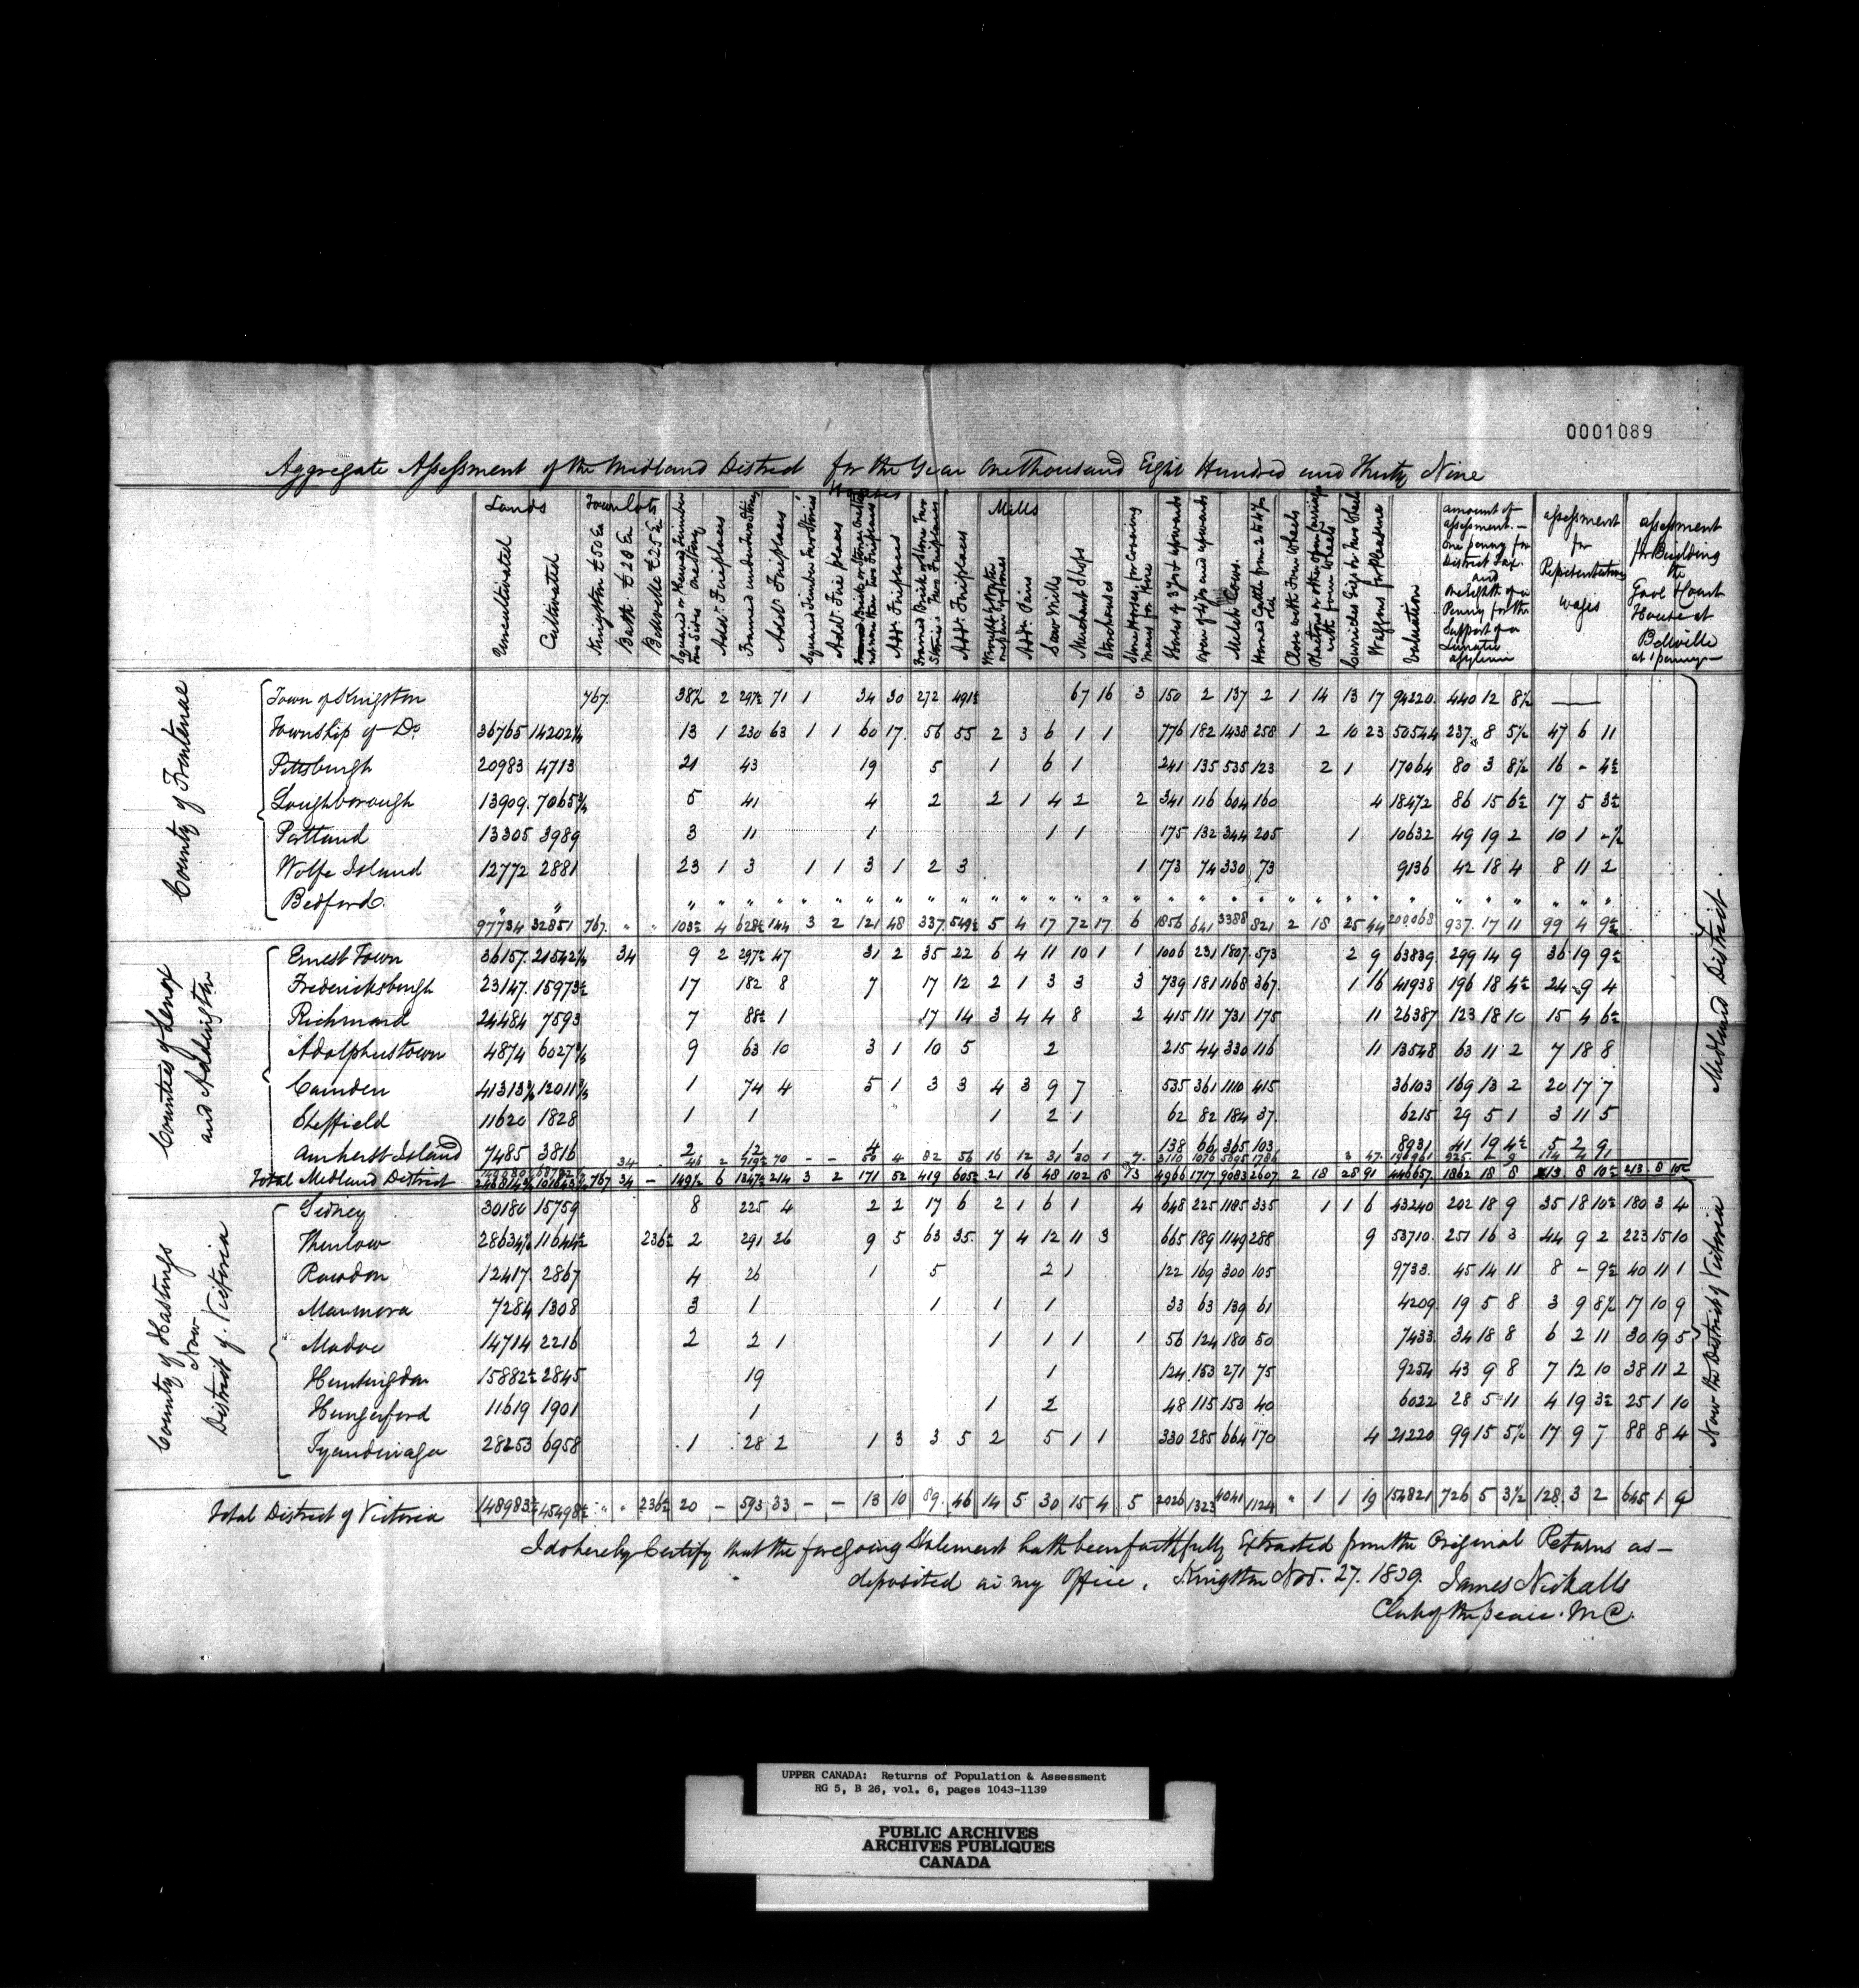 0001089
Aggregate Assessment of the Midland District for the Year One Thousand Eight Hundred and Thirty Nine
Lands
Uncultivated
Cultivated
Town Lots
Kingston £50 Ea
Bath £20 Ea
Belleville £25 Ea
Squared or Hewed Timber Two Sides one Story
Addl. Fireplaces
Framed under Two Stories
Addl. Fireplaces
Squared Timber Two Stories
Addl. Fireplaces
Houses
Brick or Stone One Story not more than Two Fireplaces
Addl. Fireplaces
Framed Brick or Stone Two Stories Two Fireplaces
Addl. Fireplaces
Mills
Addl. Pairs
Saw Mills
Merchant Shops
Storehouses
Stone Horses for Covering Mares for Hire
Horses of 3 yrs & upwards
Oxen of 4 yrs and upwards
Milch Cows
Horned Cattle from 2 to 4 yrs old
Close with Four Wheels
Phaetons or other open carriages with four wheels
Curricles Gigs &c Two Wheels
Waggons for Pleasure
Valuation
amount of assessment - one penny for District Tax and one Eighth of a Penny for the Support of a Lunatic asylum
assessment for Representation wages
assessment for Building the Gaol & Court House at Bellville at 1 penny
County of Frontenac
Town of Kingston 767 38½ 2 297½ 71 1 34 30 272 491½ 67 16 3 150 2 137 2 1 14 13 17 94220 440 12 8½ —
Township of Do 36765 14202¼ 13 1 230 63 1 1 60 17 56 55 2 3 6 1 1 776 182 1438 258 1 2 10 23 50544 237 8 5½ 47 6 11
Pittsburgh 20983 4713 21 43 19 5 1 6 1 241 135 535 123 2 1 17064 80 3 8½ 16 - 4½
Loughborough 13909 7065¾ 5 41 4 2 2 1 4 2 2 341 116 604 160 4 18472 86 15 6½ 17 5 3½
Portland 13305 3989 3 11 1 1 1 175 132 344 205 1 10632 49 19 2 10 1 -½
Wolfe Island 12772 2881 23 1 3 1 1 3 1 2 3 1 173 74 330 73 9136 42 18 4 8 11 2
Bedford " " " " " " " " " " " " " " " " " " " " " " " " " " " " " " " "
97734 32851 767 " " 103½ 4 628½ 144 3 2 121 48 337 549½ 5 4 17 72 17 6 1856 641 3388 821 2 18 25 44 200068 937 17 11 99 4 9½
Counties of Lenox and Addington
Ernest Town 36157 21542¼ 34 9 2 297½ 47 31 2 35 22 6 4 11 10 1 1 1006 231 1807 573 2 9 63839 299 14 9 36 19 9½
Fredericksburgh 23147 15973½ 17 182 8 7 17 12 2 1 3 3 3 739 181 1168 367 1 16 41938 196 18 4½ 24 9 4
Richmond 24484 7593 7 88½ 1 17 14 3 4 4 8 2 415 111 731 175 11 26387 123 18 10 15 4 6½
Adolphustown 4874 6027¾ 9 63 10 3 1 10 5 2 215 44 330 116 11 13548 63 11 2 7 18 8
Camden 41313 12011¾ 1 74 4 5 1 3 3 4 3 9 7 535 361 1110 415 36103 169 13 2 20 17 7
Sheffield 11620 1828 1 1 1 2 1 62 82 184 37 6215 29 5 1 3 11 5
Amherst Island 7485 3816 2 12 4 1 138 66 365 103 8931 41 19 4½ 5 2 9
34 - 46 2 719½ 70 - - 50 4 82 56 16 12 31 30 1 7 3110 1076 5695 1786 3 47
Total Midland District 767 34 - 149½ 6 1347½ 214 3 2 171 52 419 605½ 21 16 48 102 18 13 4966 1717 9083 2607 2 18 28 91 1862 18 8 213 8 10½ 213 8 10½
Midland District
County of Hastings Now District of Victoria
Sidney 30180 15759 8 225 4 2 2 17 6 2 1 6 1 4 648 225 1185 335 1 1 6 43240 202 18 9 35 18 10½ 180 3 4
Thurlow 28634½ 11644½ 236½ 2 291 26 9 5 63 35 7 4 12 11 3 665 189 1149 288 9 53710 251 16 3 44 9 2 223 15 10
Rawdon 12417 2867 4 26 1 5 2 1 122 169 300 105 9733 45 14 11 8 - 9½ 40 11 1
Marmora 7284 1308 3 1 1 1 1 33 63 139 61 4209 19 5 8 3 9 8½ 17 10 9
Madoc 14714 2216 2 2 1 1 1 1 1 56 124 180 50 7433 34 18 8 6 2 11 30 19 5
Huntingdon 15882½ 2845 19 1 124 153 271 75 9254 43 9 8 7 12 10 38 11 2
Hungerford 11619 1901 1 1 2 48 115 153 40 6022 28 5 11 4 19 3½ 25 1 10
Tyendinaga 28253 6958 1 28 2 1 3 3 5 2 5 1 1 330 285 664 170 4 21220 99 15 5½ 17 9 7 88 8 4
Total District of Victoria 148983½ 45498½ " " 236½ 20 - 593 33 - - 13 10 89 46 14 5 30 15 4 5 2026 1323 4041 1124 " 1 1 19 154821 726 5 3½ 128 3 2 645 1 9
Now the District of Victoria
I do hereby Certify that the foregoing Statement hath been faithfully Extracted from the Original Returns as -
deposited in my Office. Kingston Nov. 27. 1839. James Nickalls
Clerk of the Peace. M D.
UPPER CANADA: Returns of Population & Assessment
RG 5, B 26, vol. 6, pages 1043-1139
PUBLIC ARCHIVES
ARCHIVES PUBLIQUES
CANADA